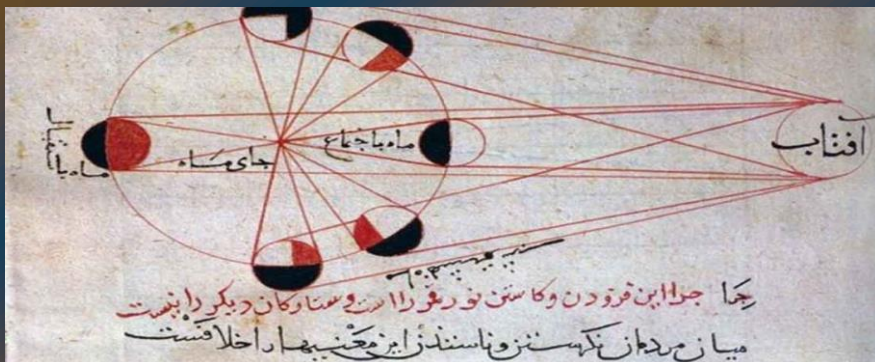 افتاب
ماه باجتماع
جای ماه
ماه باستقبال
چرا چرا این فزودن و کاستن نور قمر را است و ستارکان دیکر را نیست
میان مردمان نکرستن و ناسندز این معنیها را خلافست